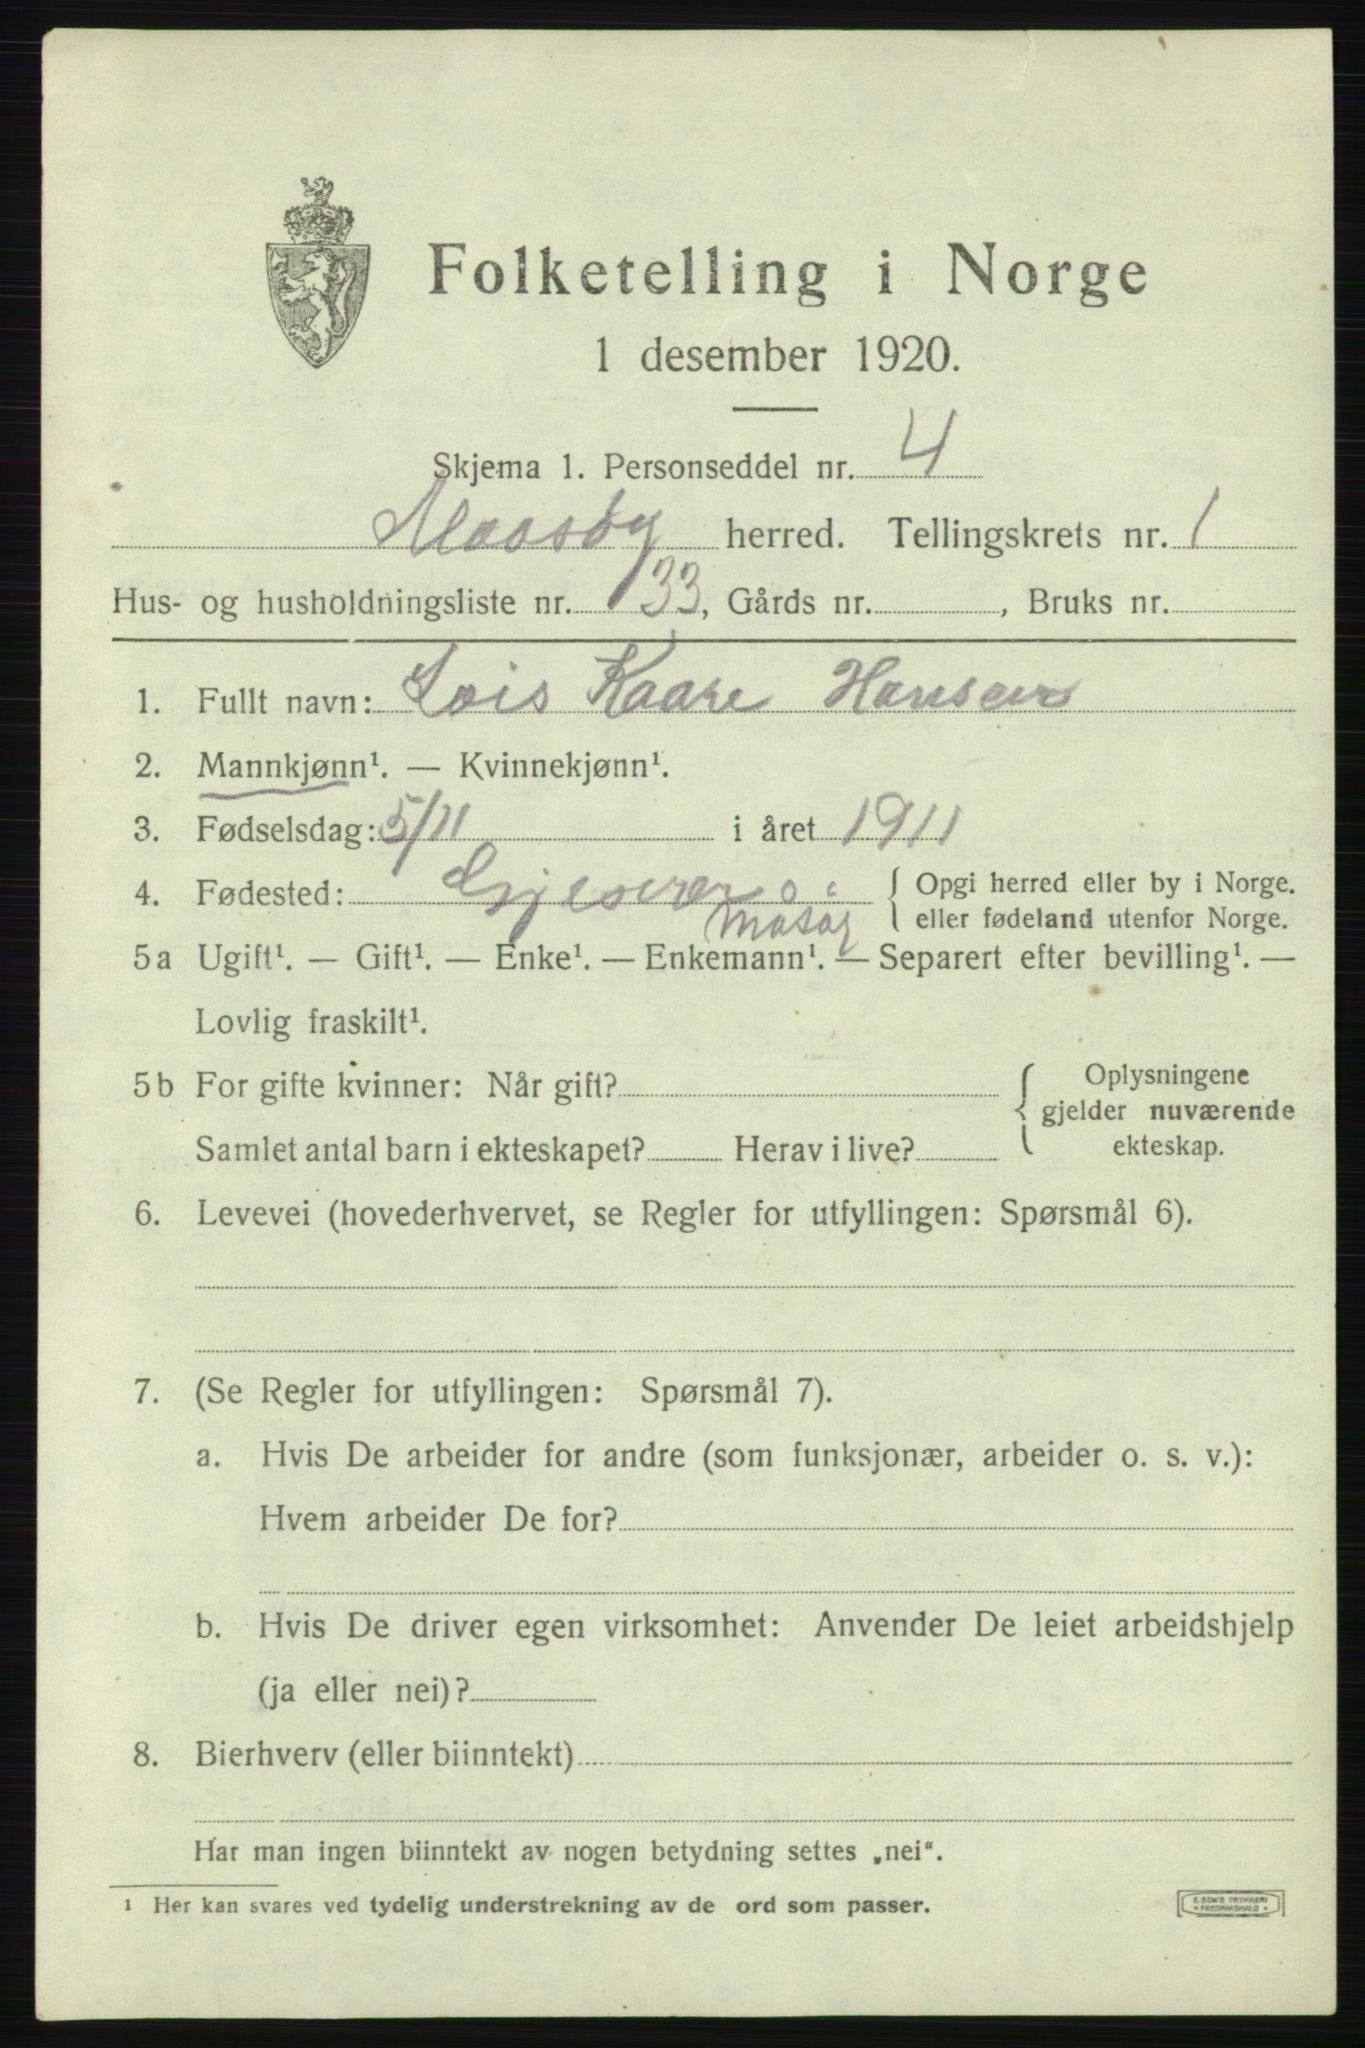 Folketelling i Norge
1 desember 1920.
Skjema 1. Personseddel nr. 4
Maasøy herred. Tellingskrets nr. 1
Hus- og husholdningsliste nr. 33, Gårds nr. , Bruks nr.
1. Fullt navn: Lois Kaare Hansen
2. Mannkjønn¹. — Kvinnekjønn¹.
3. Fødselsdag: 5/11 i året 1911
4. Fødested: Gjesvær { Opgi herred eller by i Norge.
Måsøy eller fødeland utenfor Norge.
5a Ugift¹. — Gift¹. — Enke¹. — Enkemann¹. — Separert efter bevilling¹. —
Lovlig fraskilt¹.
5b For gifte kvinner: Når gift? { Oplysningene
gjelder nuværende
Samlet antal barn i ekteskapet? Herav i live? ekteskap.
6. Levevei (hovederhvervet, se Regler for utfyllingen: Spørsmål 6).
7. (Se Regler for utfyllingen: Spørsmål 7).
a. Hvis De arbeider for andre (som funksjonær, arbeider o. s. v.):
Hvem arbeider De for?
b. Hvis De driver egen virksomhet: Anvender De leiet arbeidshjelp
(ja eller nei)?
8. Bierhverv (eller biinntekt)
Har man ingen biinntekt av nogen betydning settes „nei“.
¹ Her kan svares ved tydelig understrekning av de ord som passer.
E. SEM'S TRYKKERI
* FREDRIKSHALD *